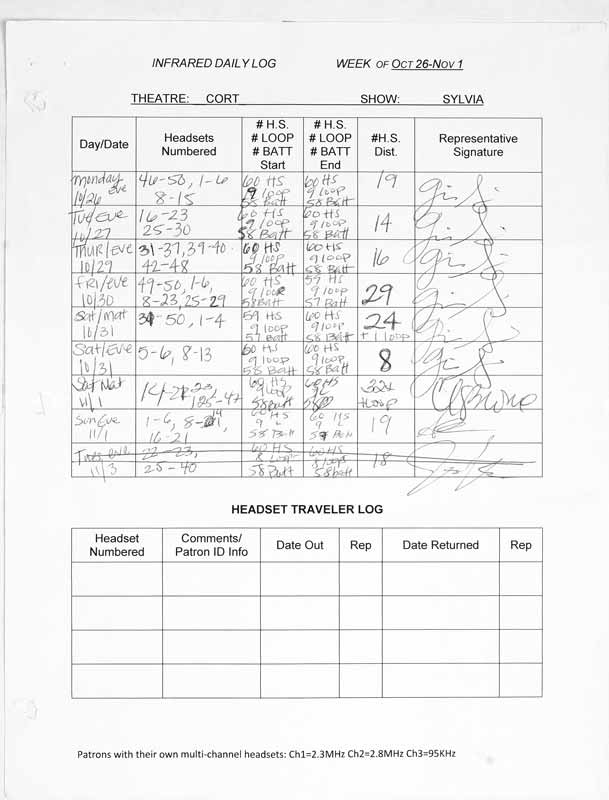 INFRARED DAILY LOG WEEK OF OCT 26-NOV 1
THEATRE: CORT SHOW: SYLVIA
Day/Date Headsets Numbered # H.S. # LOOP # BATT Start # H.S. # LOOP # BATT End #H.S. Dist. Representative Signature
Monday eve 10/26 46-50, 1-6 8-15 60 HS 9 loop 58 Batt 60 HS 9 loop 58 Batt 19
Tue/Eve 10/27 16-23 25-30 60 HS 9 loop 58 Batt 60 HS 9 loop 58 Batt 14
Thur/Eve 10/29 31-37, 39-40 42-48 60 HS 9 loop 58 Batt 60 HS 9 loop 58 Batt 16
Fri/Eve 10/30 49-50, 1-6, 8-23, 25-29 60 HS 9 loop 58 Batt 59 HS 9 loop 57 Batt 29
Sat/Mat 10/31 50, 1-4 59 HS 9 loop 57 Batt 60 HS 9 loop 58 Batt 24 + 1 loop
Sat/Eve 10/31 5-6, 8-13 60 HS 9 loop 58 Batt 60 HS 9 loop 58 Batt 8
Mat 11/1 60 HS 9 loop 58 Batt 60 HS 9 L
Sun Eve 11/1 1-6, 16-21 60 HS 9 L 58 Batt 60 HS 9 L Batt 19
Tues eve 11/3 22-23, 25-40 60 HS 8 Loop 58 Batt 60 HS 8 loops 58 batt 18
HEADSET TRAVELER LOG
Headset Numbered Comments/ Patron ID Info Date Out Rep Date Returned Rep
Patrons with their own multi-channel headsets: Ch1=2.3MHz Ch2=2.8MHz Ch3=95KHz